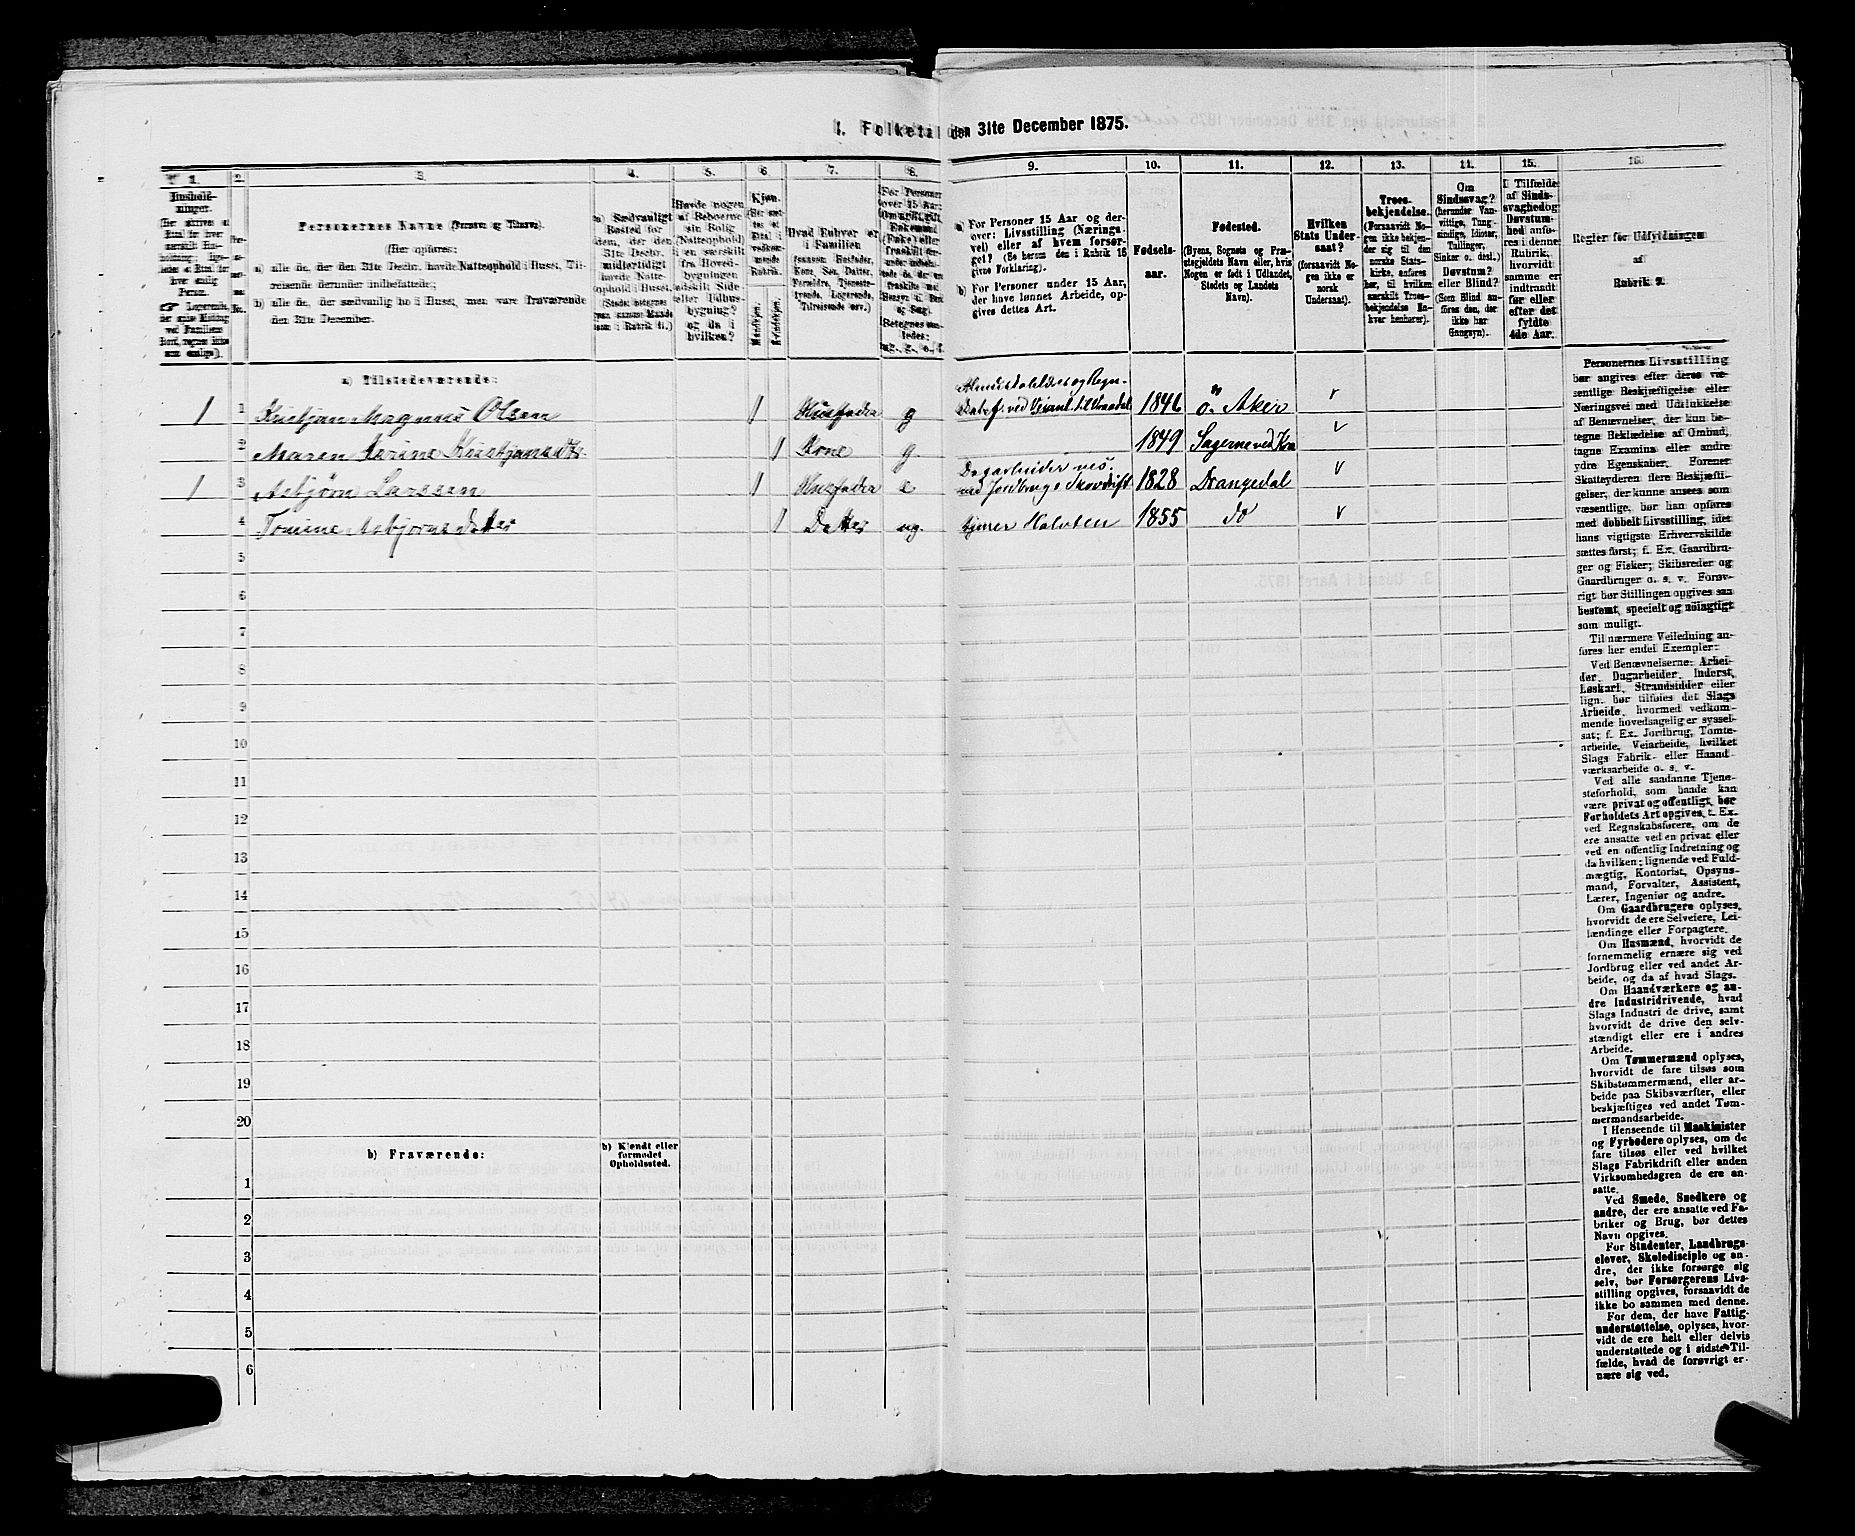 1. Folketal den 31te December 1875.
1. 2. 3. 4. 5. 6. 7. 8. 9. 10. 11. 12. 13. 14. 15. 16.
Personernes Navne (Fornavn og Tilnavn).
(Her opføres:
a) alle de, der den 31te Decbr. havde Natteophold i Huset, Tilreisende derunder indbefattede;
b) alle de, der sædvanlig bo i Huset, men vare fraværende den 31te December.
a) Sædvanligt Bosted for dem, der den 31te Decbr. midlertidigt havde Natteophold i Huset.
Havde nogen af Beboerne sin Bolig (Natteophold) i en særskilt fra Hovedbygningen adskilt Side- eller Udhusbygning? og da i hvilken?
Kjøn.
Mandkjøn. Kvindekjøn.
Hvad Enhver er i Familien
a) For Personer 15 Aar og derover: Livsstilling (Næringsvei) eller af hvem forsørget? (Se herom den i Rubrik 16 givne Forklaring).
b) For Personer under 15 Aar, der have lønnet Arbeide, opgives dettes Art.
Fødselsaar.
Fødested.
(Byens, Sognets og Præstegjeldets Navn eller, hvis Nogen er født i Udlandet, Stedets og Landets Navn).
Hvilken Stats Undersaat?
(forsaavidt Nogen ikke er norsk Undersaat).
Troesbekjendelse.
(Forsaavidt Nogen ikke bekjender sig til den norske Statskirke, anføres her, til hvilken særskilt Troesbekjendelse Enhver henhører).
Om Sindssvag? (herunder Vanvittige, Tungsindige, Idioter, Tullinger, Sinker o. desl.) Døvstum? eller Blind? (Som Blind anføres den, der ikke har Gangsyn).
I Tilfælde af Sindssvaghed og Døvstumhed anføres i denne Rubrik, hvorvidt samme er indtraadt før eller efter det fyldte 4de Aar.
Regler for Udfyldningen
af
Rubrik 9.
a) Tilstedeværende:
1 1 Kristjan Magnus Olsen 1 Husfader g 1846 Ø. Aker
2 Maren Karine Kristjansdtr 1 Kone g 1849 Sagerne ved Kra
1 3 Asbjørn Larssen 1 Husfader e Dagarbeider ved Jordbrug o Skovdrift 1828 Drangedal
4 Tomine Asbjørnsdatter 1 Datter ug. 1855 do
5
6
7
8
9
10
11
12
13
14
15
16
17
18
19
20
b) Fraværende:
b) Kjendt eller formodet Opholdssted.
1
2
3
4
5
6
Personernes Livsstilling
bør angives efter deres væ-
sentlige Beskjæftigelse eller
Næringsvei med Udelukkelse
af Benævnelser, der kun be-
tegne Beklædelse af Ombud,
tagne Examina eller andre
ydre Egenskaber. Forener
Skatteyderen flere Beskjæfti-
gelser, der kunne ansees som
væsentlige, bør han opføres
med dobbelt Livsstilling, idet
hans vigtigste Erhvervskilde
sættes først; f. Ex. Gaardbru-
ger og Fisker; Skibsreder og
Gaardbruger o. s. v. Forøv-
rigt bør Stillingen opgives saa
bestemt, specielt og nøiagtigt
som muligt.
Til nærmere Veiledning an-
føres her endel Exempler:
Ved Benævnelserne: Arbei-
der, Dagarbeider, Inderst,
Løskarl, Strandsidder eller
lign. bør tilføies det Slags
Arbeide, hvormed vedkom-
mende hovedsagelig er syssel-
sat; f. Ex. Jordbrug, Tomte-
arbeide, Veiarbeide, hvilket
Slags Fabrik- eller Haand-
værksarbeide o. s. v.
Ved alle saadanne Tjene-
steforhold, som baade kan
være privat og offentligt, bør
Forholdets Art opgives, f. Ex.
ved Regnskabsførere, om de
ere ansatte ved en privat eller
ved en offentlig Indretning og
da hvilken; lignende ved Fuld-
mægtig, Kontorist, Opsyns-
mand, Forvalter, Assistent,
Lærer, Ingeniør og andre.
Om Gaardbrugere oplyses,
hvorvidt de ere Selveiere, Lei-
lændinge eller Forpagtere.
Om Husmænd, hvorvidt de
fornemmelig ernære sig ved
Jordbrug eller ved andet Ar-
beide, og da af hvad Slags.
Om Haandværkere og an-
dre Industridrivende, hvad
Slags Industri de drive, samt
hvorvidt de drive den selv-
stændigt eller ere i andres
Arbeide.
Om Tømmermænd oplyses,
hvorvidt de fare tilsøs som
Skibstømmermænd, eller ar-
beide paa Skibsværfter, eller
beskjæftiges ved andet Tøm-
mermandsarbeide.
I Henseende til Maskinister
og Fyrbødere oplyses, om de
fare tilsøs eller ved hvilket
Slags Fabrikdrift eller anden
Virksomhedsgren de ere an-
satte.
Ved Smede, Snedkere og
andre, der ere ansatte ved Fa-
briker og Brug, bør dettes
Navn opgives.
For Studenter, Landbrugs-
elever, Skoledisciple og an-
dre, der ikke forsørge sig
selv, bør Forsørgerens Livs-
stilling opgives, forsaavidt de
ikke bo sammen med denne.
For dem, der have Fattig-
understøttelse, oplyses, hvor-
vidt de ere helt eller delvis
understøttede og i sidste Til-
fælde, hvad de forøvrigt er-
nære sig ved.